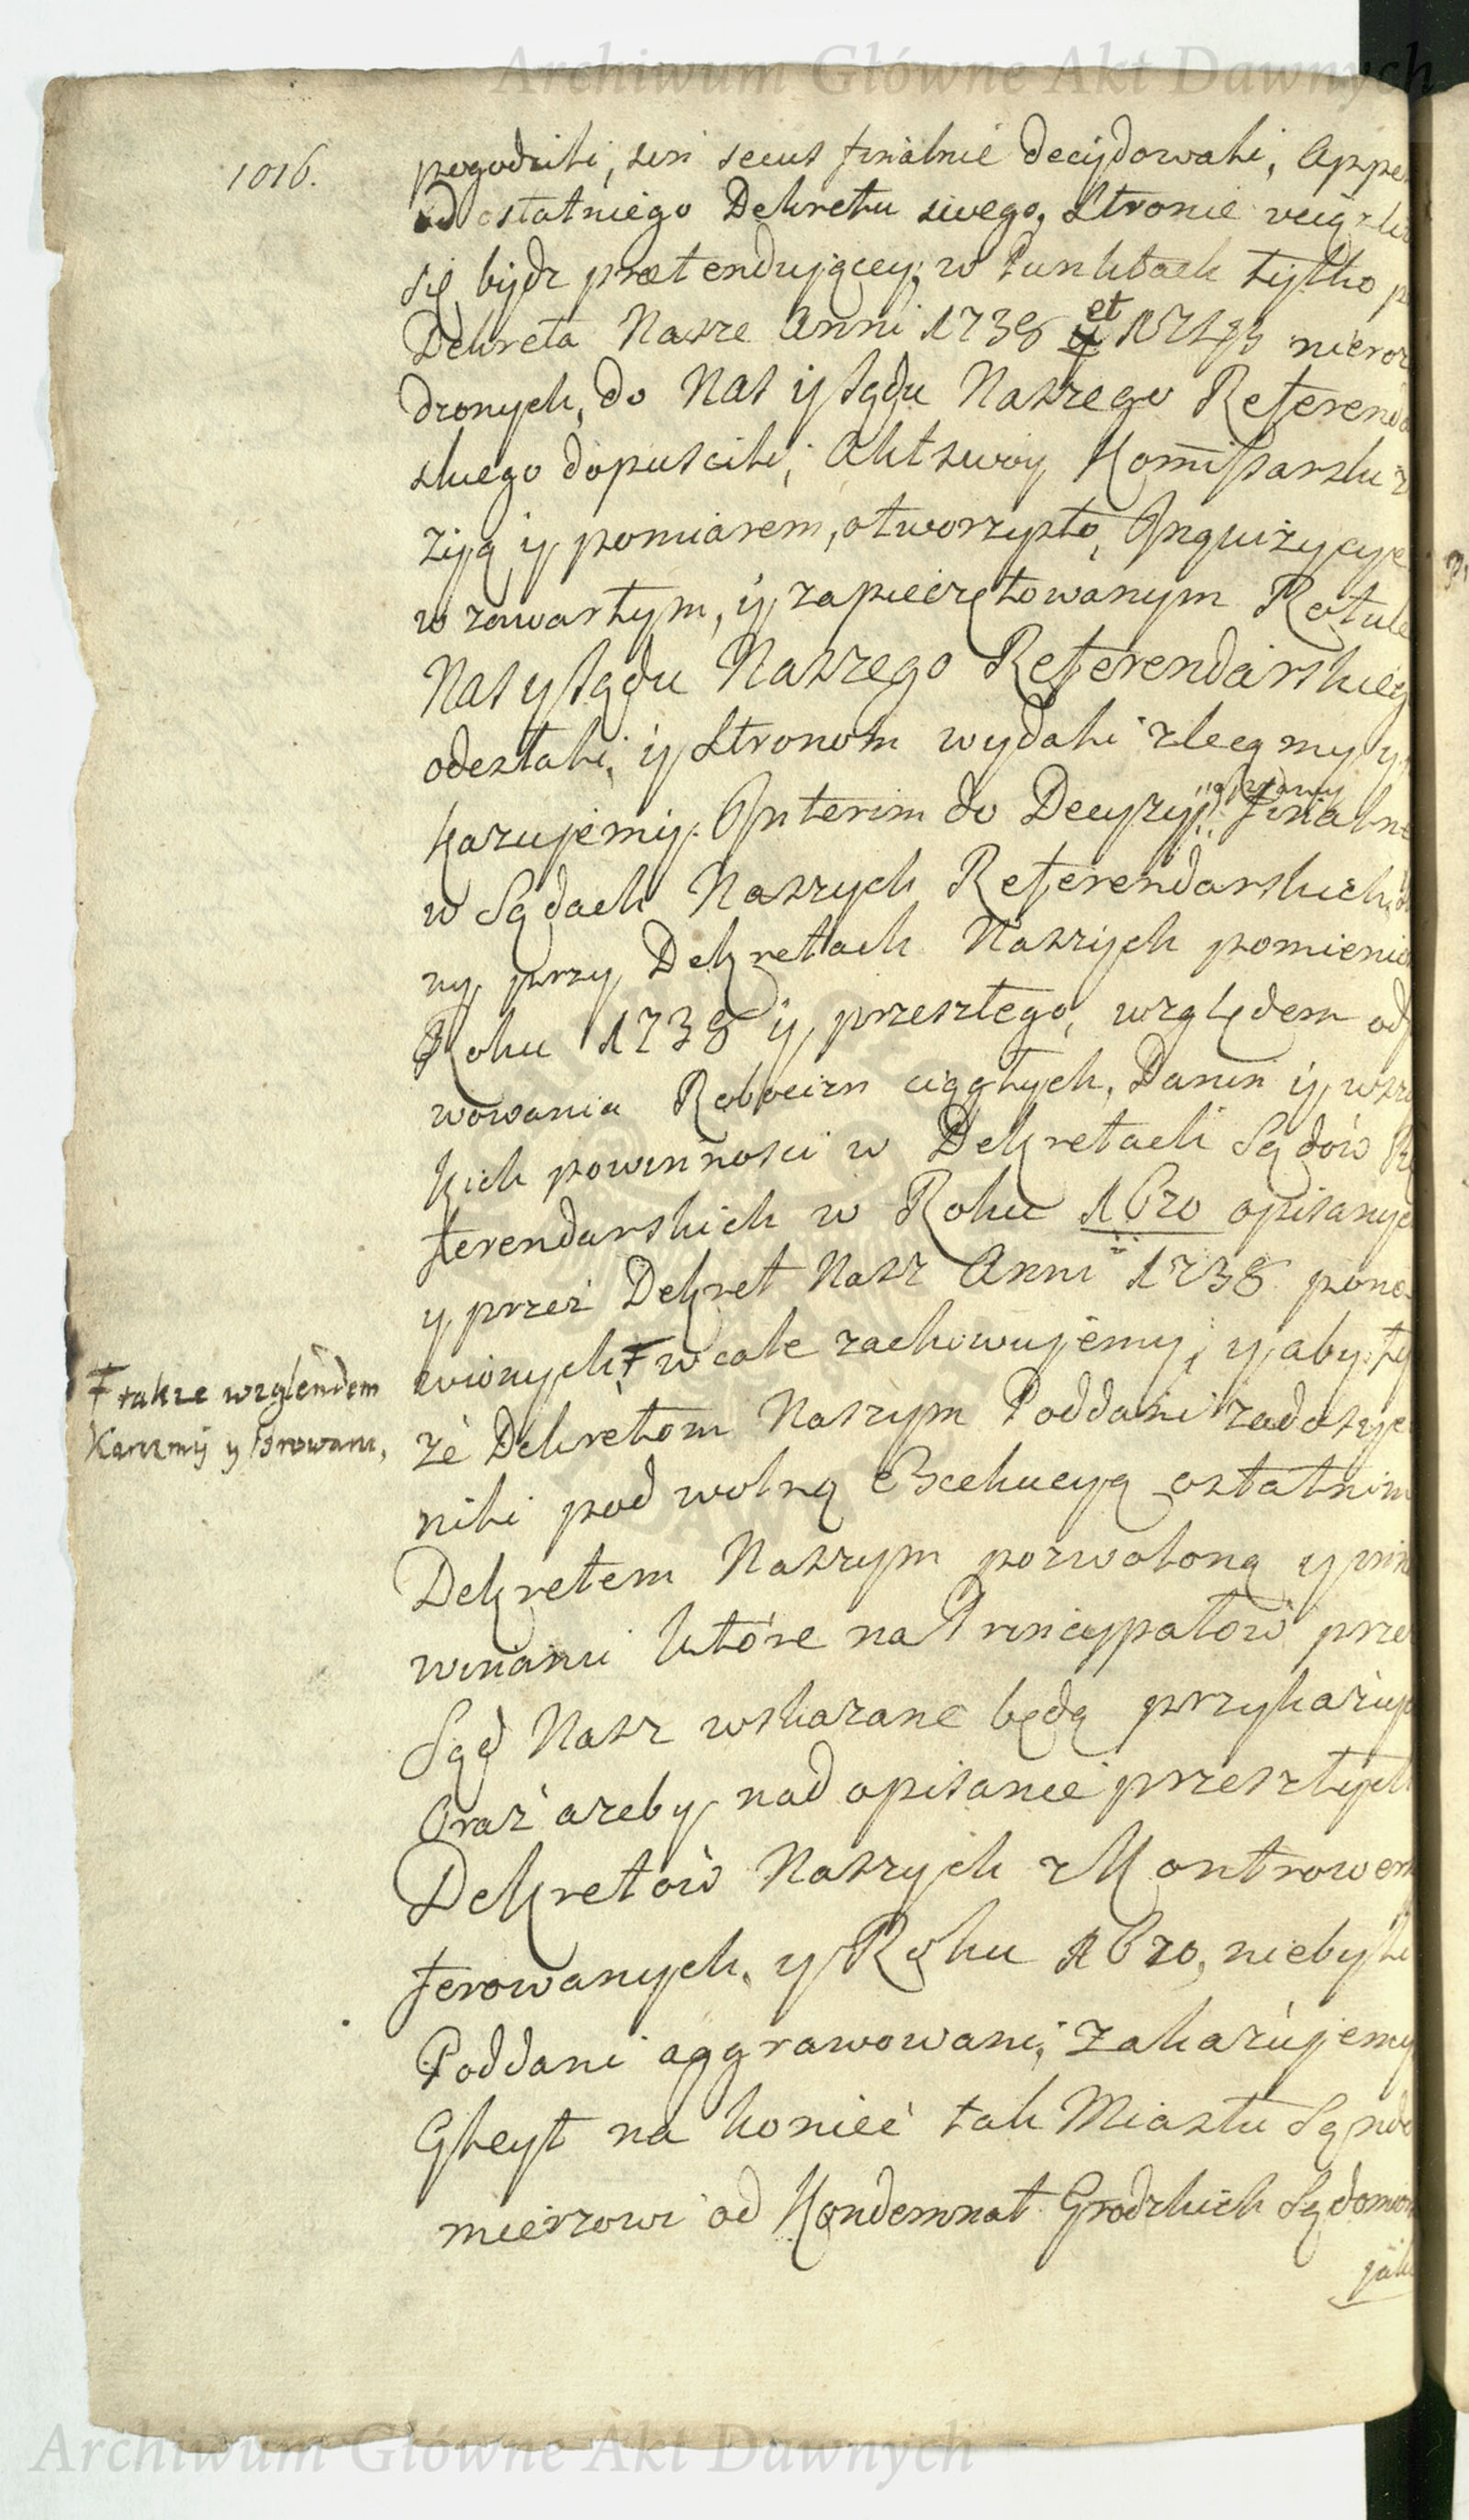 Archiwum Główne Akt Dawnych
1016.
pogodzili, seu secus finalnie decydowali, Appe
od ostatniego Dekretu swego, Stronie uciązliw
się bydz prætendującey, w Punktach tylko p
Dekreta Nasze Anni 1738 et nieroz
dzonych, do Nas y Sądu Naszego Referenda
skiego dopuscili, Akt swoy Kommissarski z
zyą y pomiarem, otworzysto, Inquizycye
w zawartym, y zapieczętowanym Rotule
Nas y Sądu Naszego Referendarskieg
odesłali, y Stronom wydali zlecamy y
kazujemy. Interim do Decyzyi sprawy finalne
w Sądach Naszych Referendarskich
ny przy Dekretach Naszych pomienio
Roku 1738 y przeszłego, względem od
wowania Robocizn ciągłych, Danin y wsze
kich powinnosci w Dekretach Sądów Re
ferendarskich w Roku 1620 opisanyc
y przez Dekret Nasz Anni 1738 pono
wionych, ꟻ w cale zachowujemy, y aby ty
ꟻ takze względem
Karczmy y Browaru,
że Dekretom Naszym Poddani zadosyc
nili pod wolną Exekucyą ostatnim
Dekretem Naszym pozwoloną y pod
winami które na Pryncypałow prze
Sąd Nasz wskazane będą przykazuje
Oraz azeby nad opisanie przeszłych
Dekretów Naszych z Kontrowers
ferowanych, y Roku 1620, niebyli
Poddani aggrawowani, zakazujemy
Gleyt na koniec tak Miastu Sando
mierzowi od Kondemnat Grodzkich Sędomir
jako
Archiwum Główne Akt Dawnych